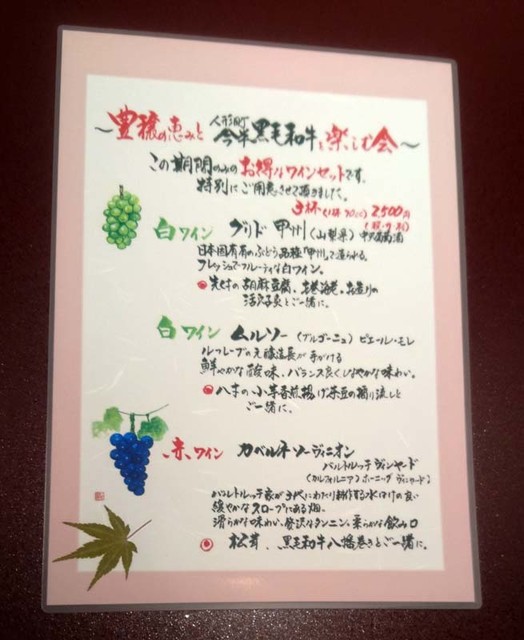 ～豊穣の恵みと 人形町 今半 黒毛和牛を楽しむ会～
この期間のみのお得なワインセットです。
特別にご用意させて頂きました。
3杯(1杯 70cc) 2,500円
(税・サ別)
白ワイン グリド 甲州 (山梨県) 中央葡萄酒
日本固有のぶどう品種「甲州」で造られる。
フレッシュでフルーティな白ワイン。
先付の胡麻豆腐、お造りの
と一緒に。
白ワイン ムルソー (ブルゴーニュ) ピエール・モレ
ルフレーブの元醸造長が手がける
鮮やかな酸味、バランス良くしなやかな味わい。
八寸の小芋香煎揚げ茶豆の摺り流しと
ご一緒に。
赤ワイン カベルネソーヴィニオン
バルトルッチヴィンヤード
(カルフォルニア) ホーニッグヴィンヤード
バルトルッチ家が3代にわたり耕作する水はけの良い
緩やかなスロープにある畑。
滑らかな味わい、贅沢なタンニン、柔らかな飲み口
松茸、黒毛和牛八幡巻きとご一緒に。